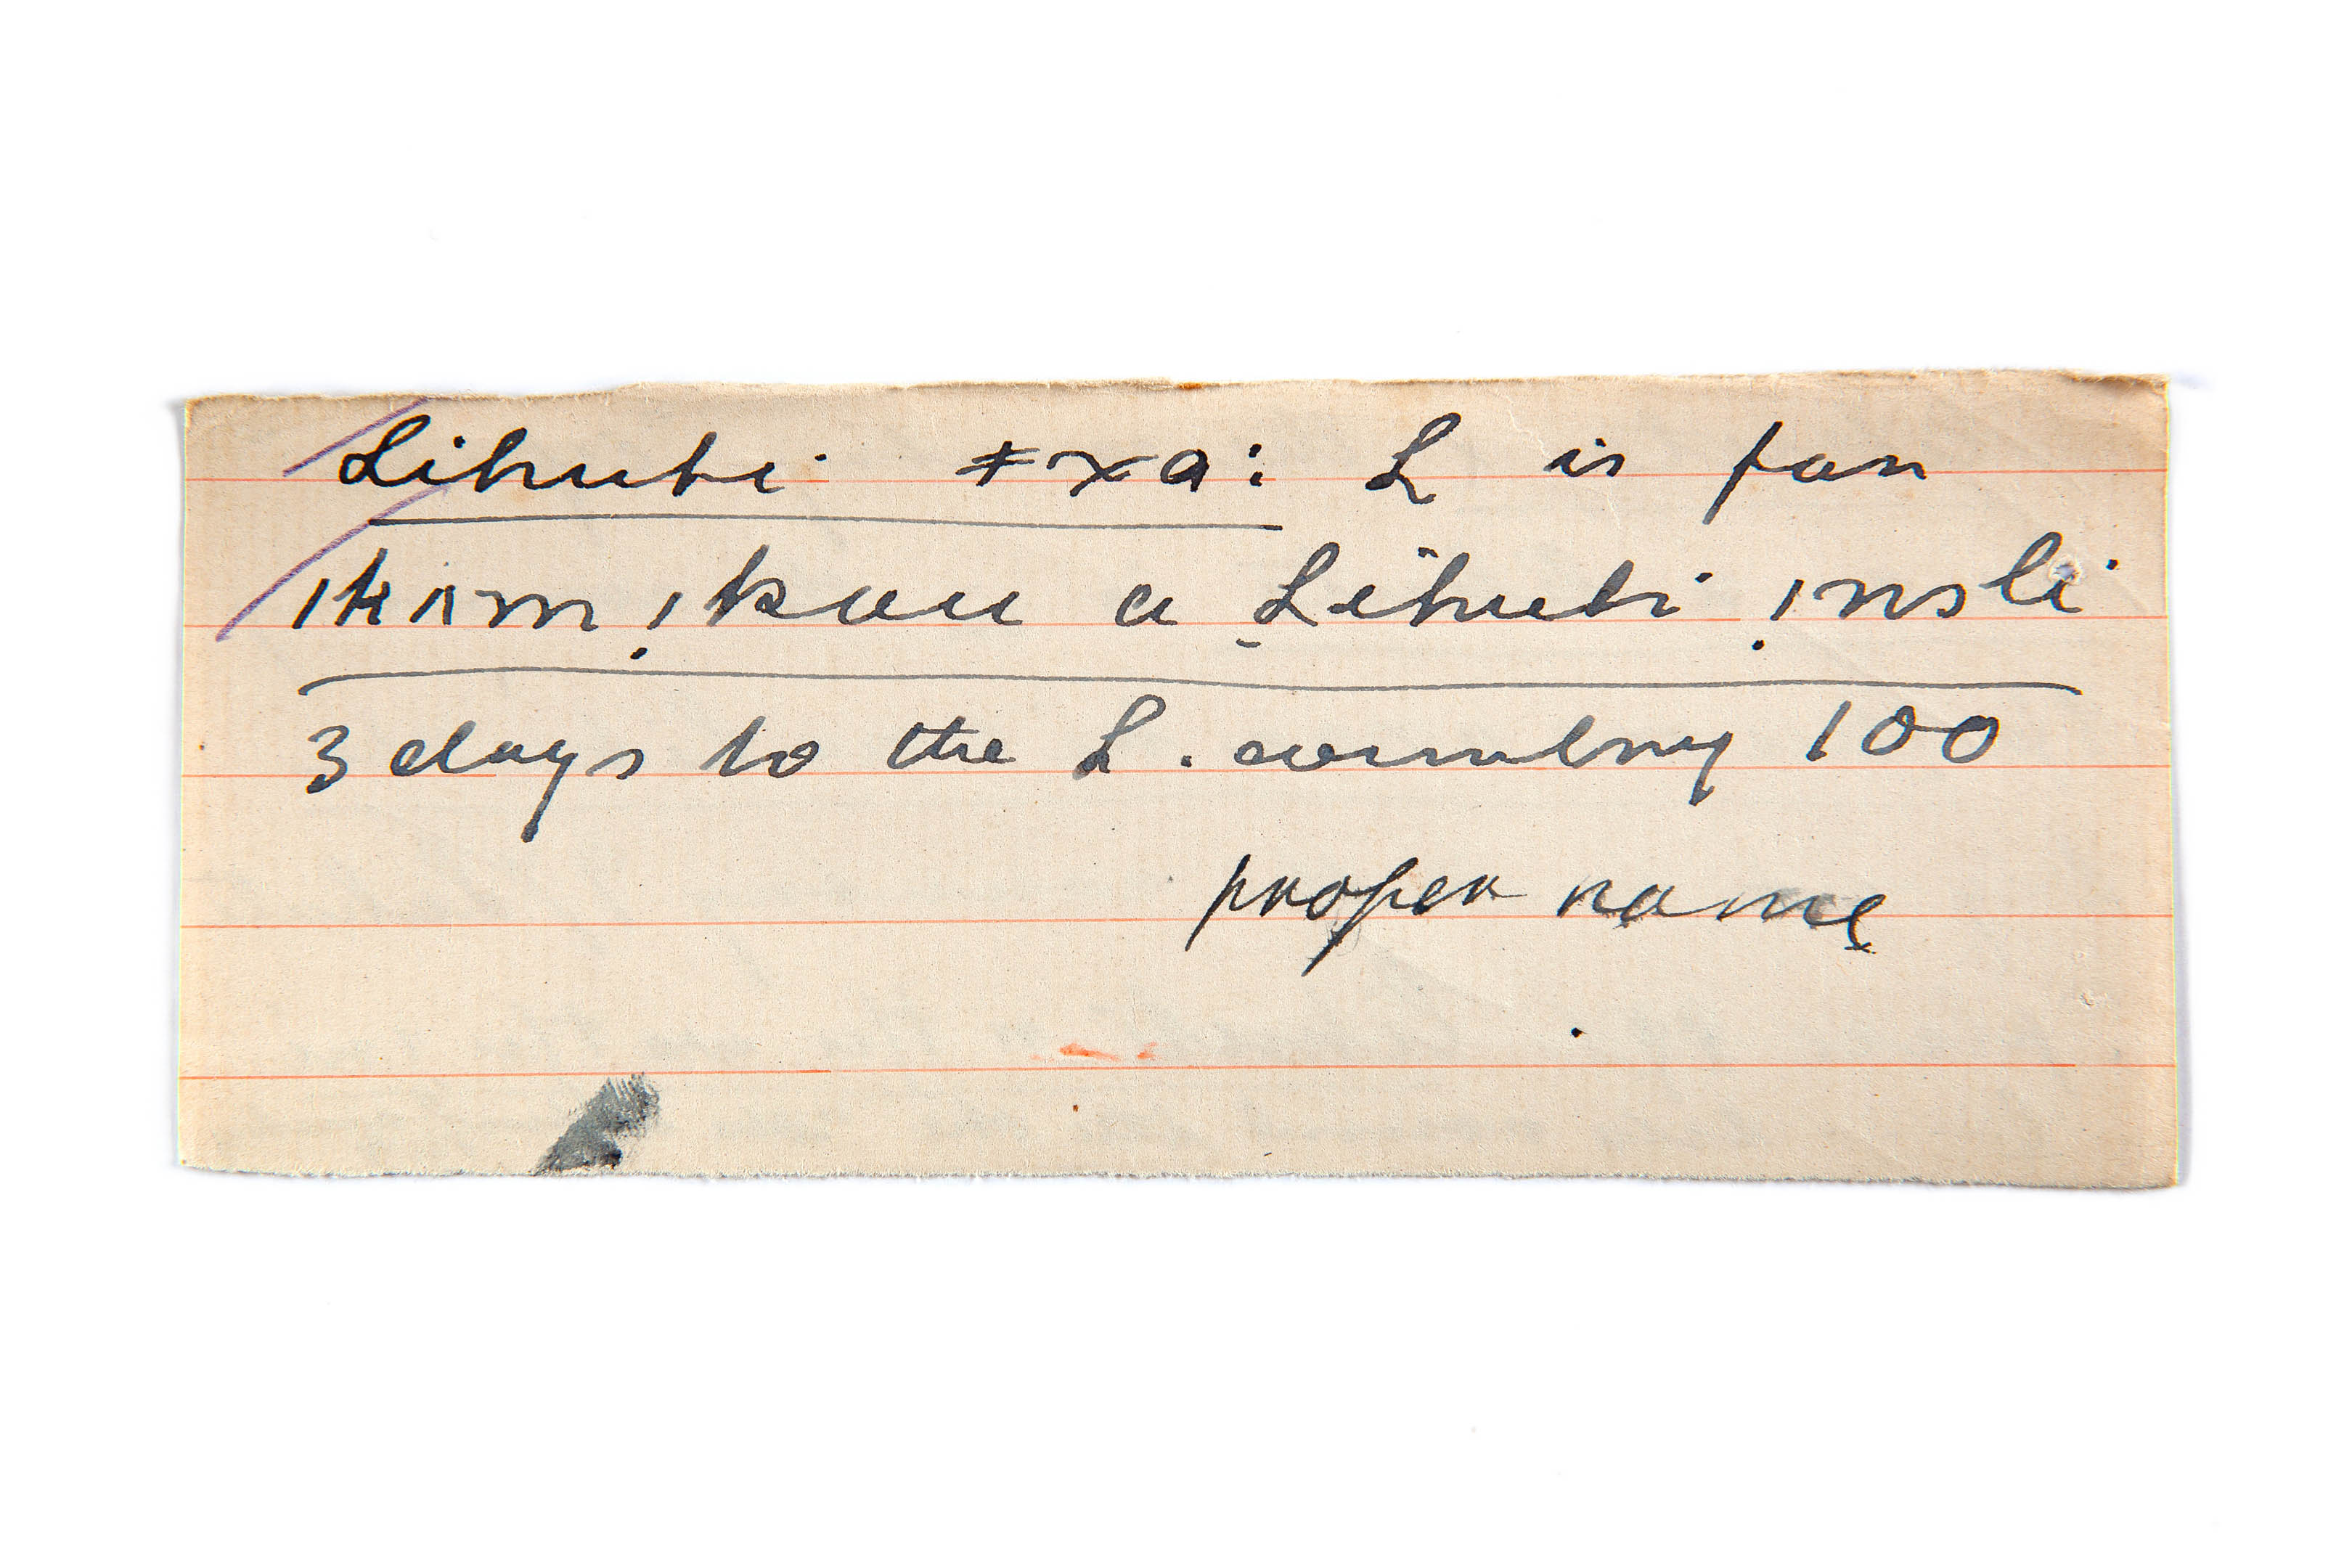 Lihubi ǂxa: L is far
ǀkam ǃkau a Lihubi ǃnsli
3 days to the L. country 100
proper name